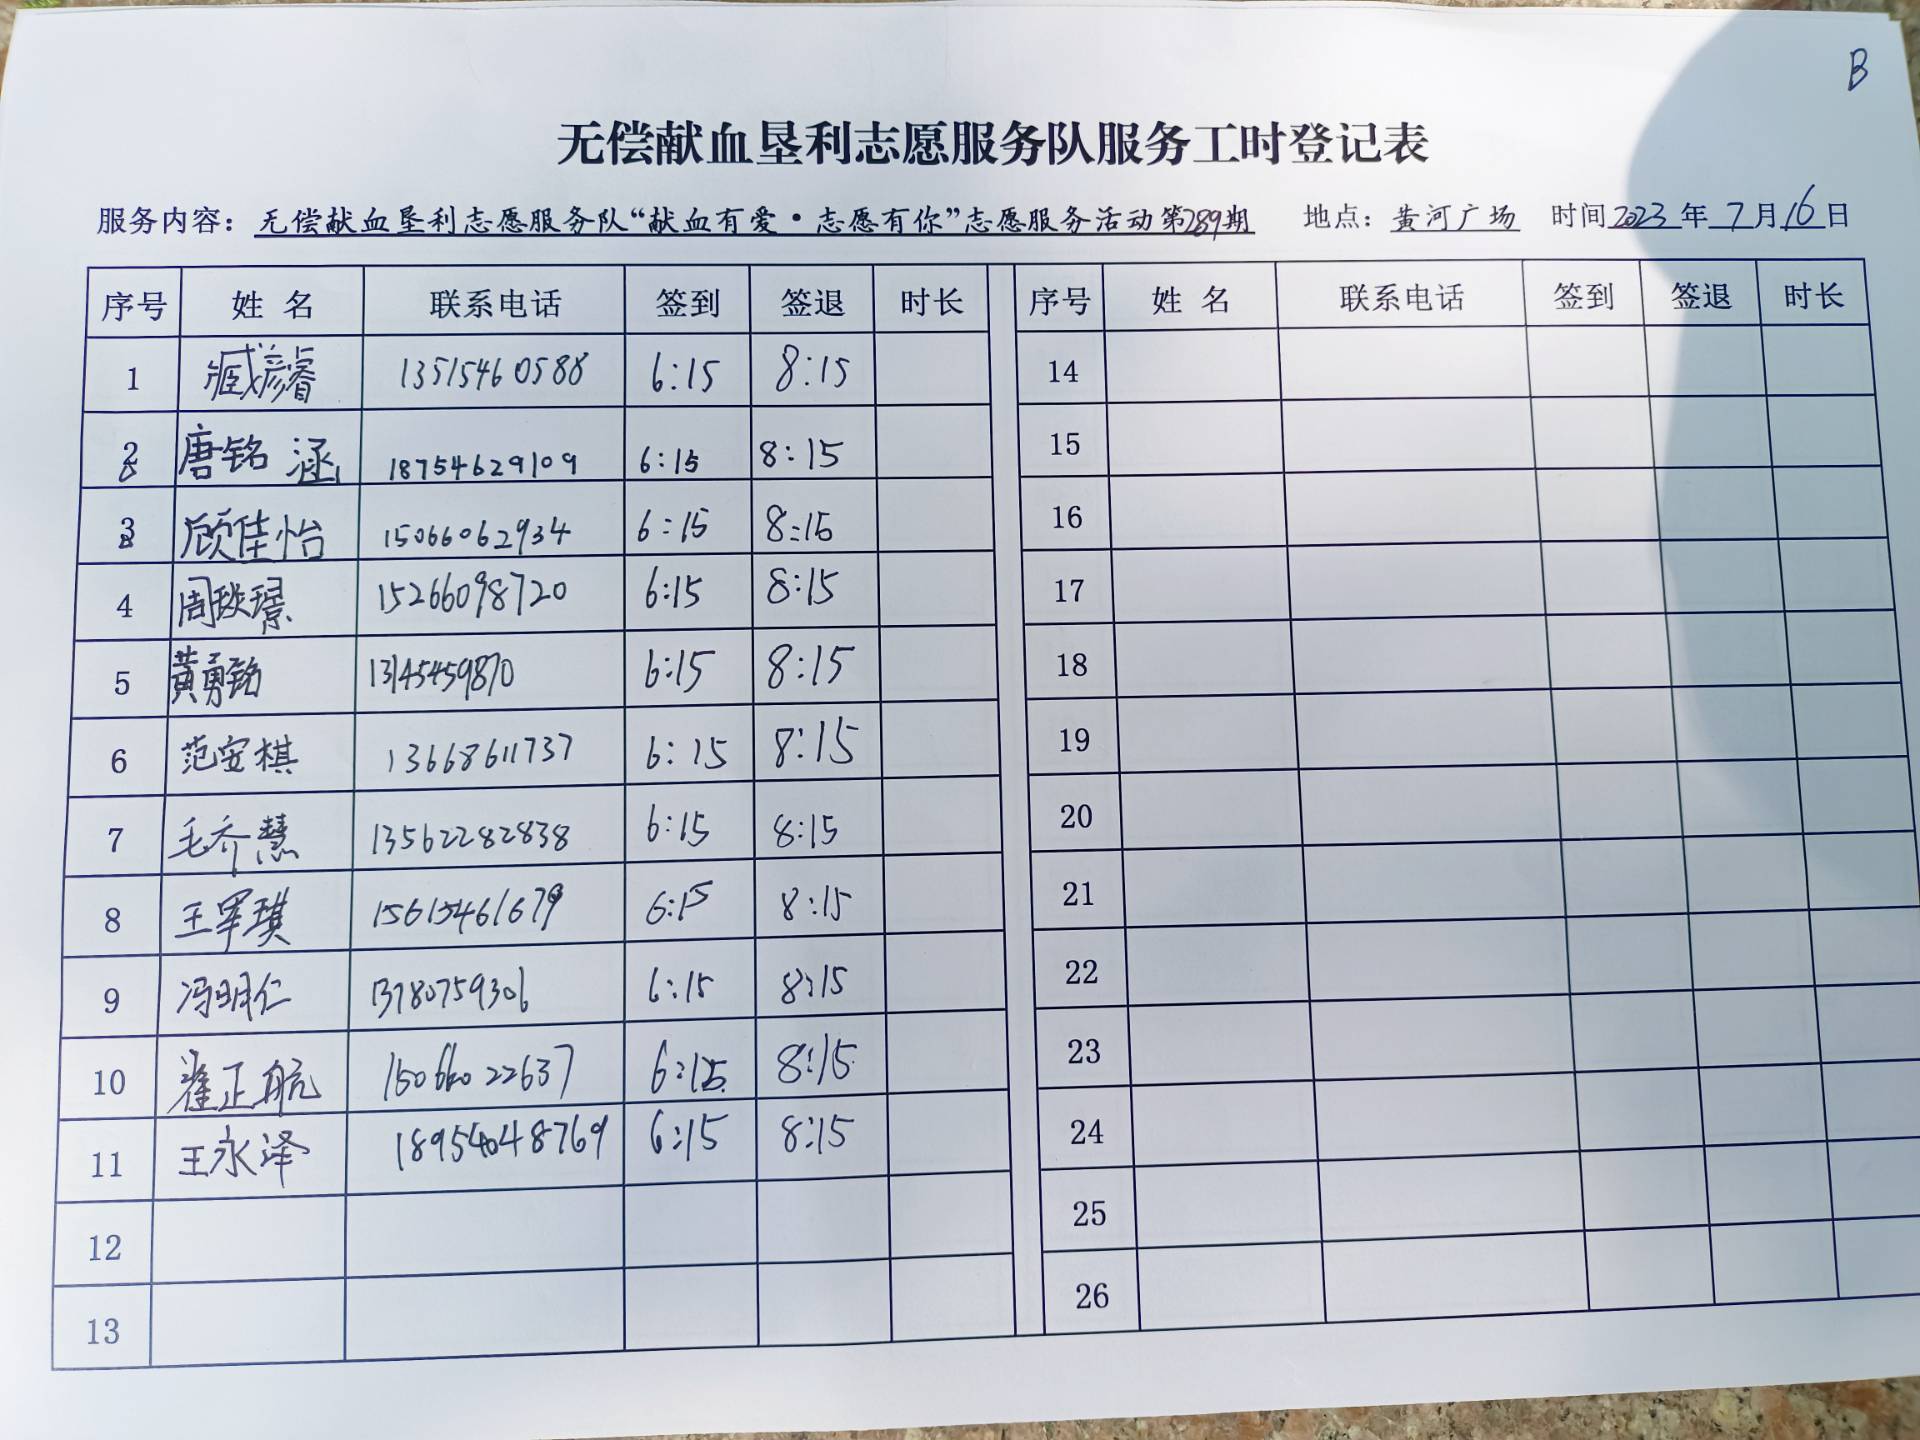 B
无偿献血垦利志愿服务队服务工时登记表
服务内容：无偿献血垦利志愿服务队“献血有爱·志愿有你”志愿服务活动第289期 地点：黄河广场 时间2023年7月16日
序号 姓名 联系电话 签到 签退 时长 序号 姓名 联系电话 签到 签退 时长
1 臧彦睿 13515460588 6:15 8:15 14
2 唐铭涵 18754629109 6:15 8:15 15
3 顾佳怡 15066062934 6:15 8:15 16
4 周玦璟 15266098720 6:15 8:15 17
5 黄勇铭 13145459870 6:15 8:15 18
6 范安棋 13668611737 6:15 8:15 19
7 毛乔慧 13562282838 6:15 8:15 20
8 王军琪 15615461679 6:15 8:15 21
9 冯明仁 13780759306 6:15 8:15 22
10 崔正航 15066022637 6:15 8:15 23
11 王永泽 18954048769 6:15 8:15 24
12 25
13 26